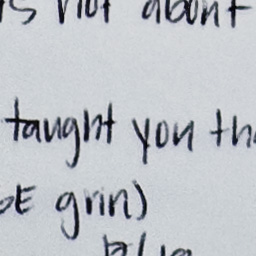 is not about
taught you th
grin)